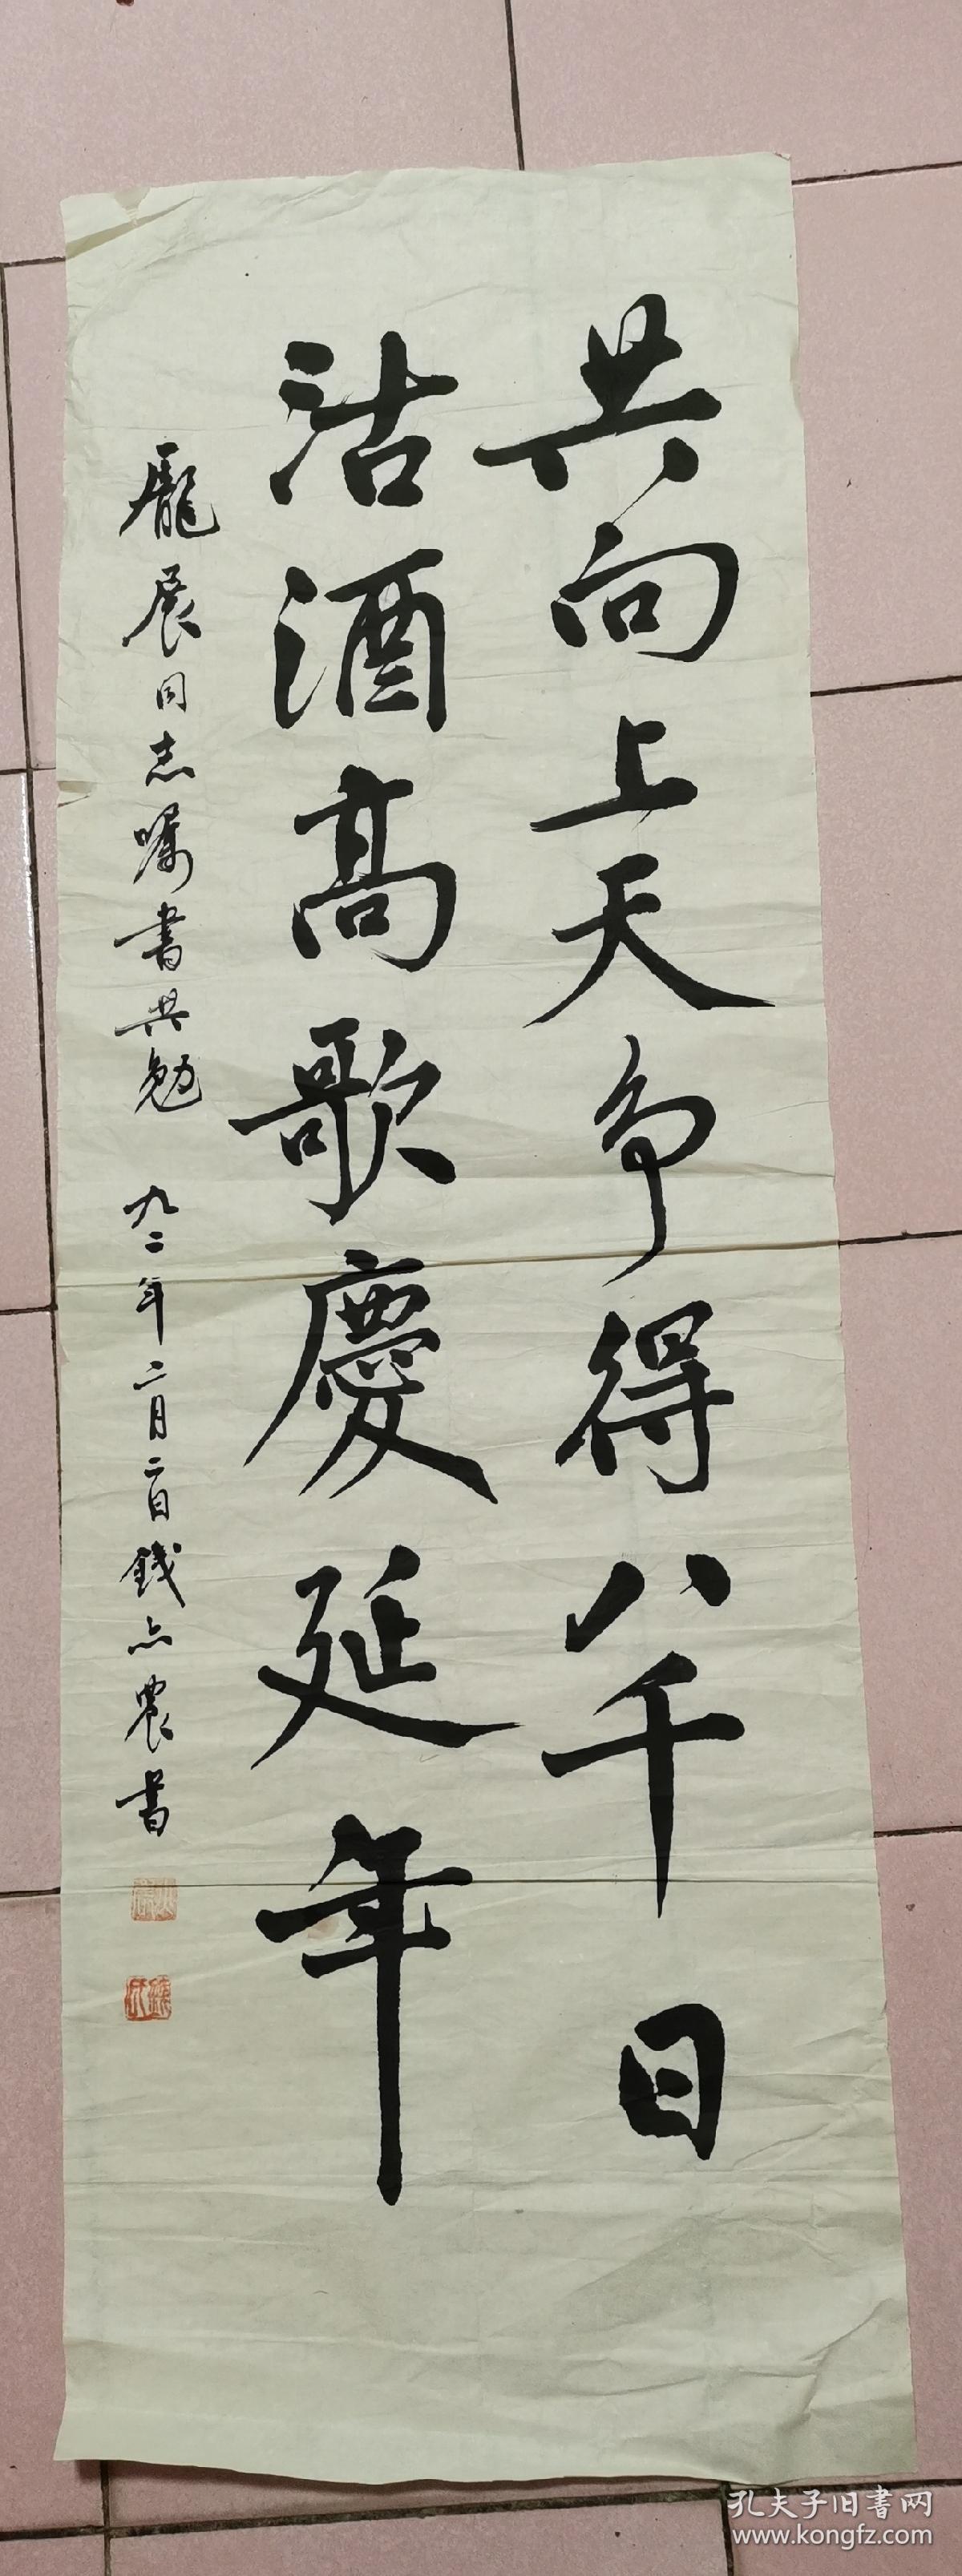 共向上天争得八千日
沽酒高歌慶延年
龐展同志嘱書共勉 九二年二月二日 錢点農书
孔夫子旧書网
www.kongfz.com